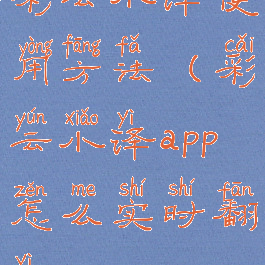 彩云小译使
yòng fāng fǎ cǎi
用方法(彩
yún xiǎo yì
云小译app
zěn me shí shí fān
怎么实时翻
yì